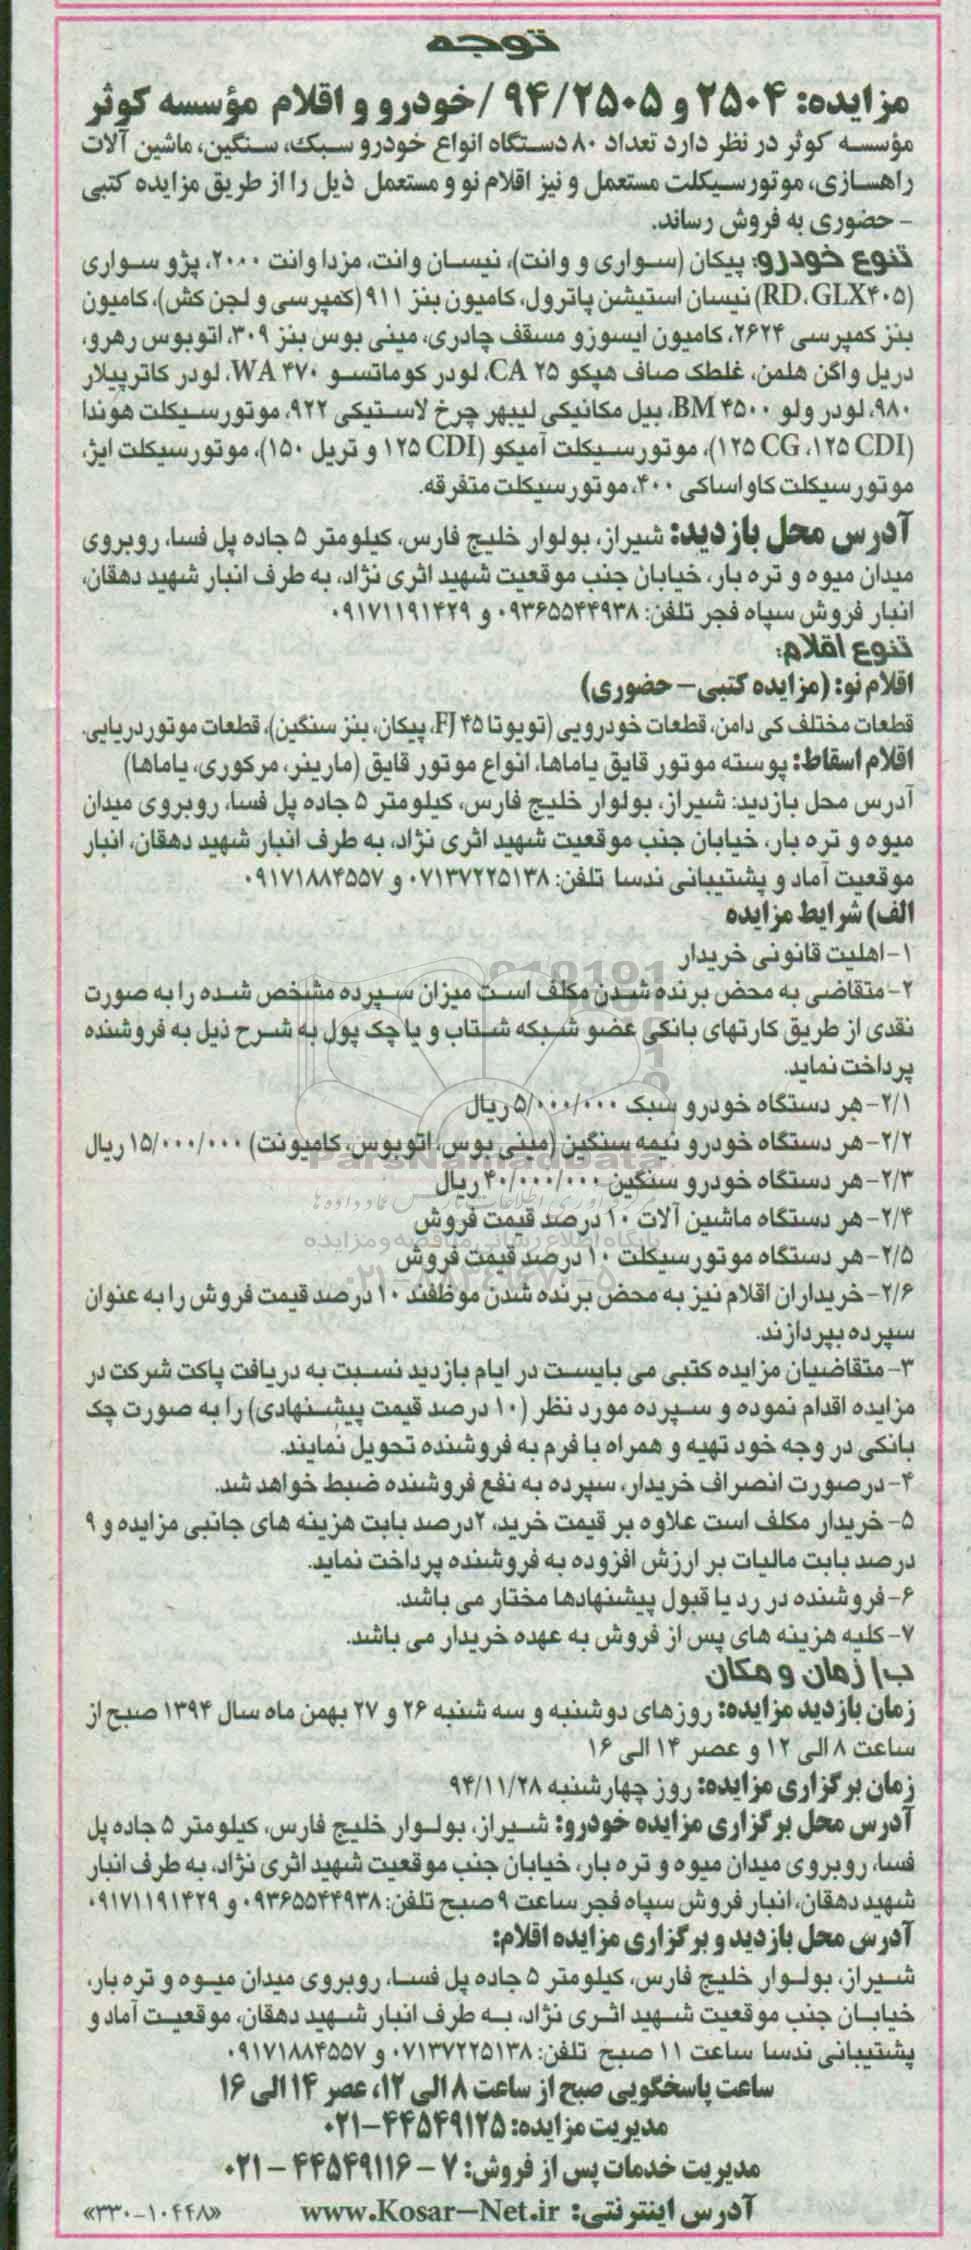 توجه
مزایده: ۲۵۰۴ و ۹۴/۲۵۰۵ /خودرو و اقلام مؤسسه کوثر
مؤسسه کوثر در نظر دارد تعداد ۸۰ دستگاه انواع خودرو سبک، سنگین، ماشین آلات
راهسازی، موتورسیکلت مستعمل و نیز اقلام نو و مستعمل ذیل را از طریق مزایده کتبی
- حضوری به فروش رساند.
تنوع خودرو: پیکان (سواری و وانت)، نیسان وانت، مزدا وانت ۲۰۰۰، پژو سواری
(RD، GLX۴۰۵) نیسان استیشن پاترول، کامیون بنز ۹۱۱ (کمپرسی و لجن کش)، کامیون
بنز کمپرسی ۲۶۲۴، کامیون ایسوزو مسقف چادری، مینی بوس بنز ۳۰۹، اتوبوس رهرو،
دریل واگن هلمن، غلطک صاف هپکو CA ۲۵، لودر کوماتسو WA ۴۷۰، لودر کاترپیلار
۹۸۰، لودر ولو BM ۴۵۰۰، بیل مکانیکی لیبهر چرخ لاستیکی ۹۲۲، موتورسیکلت هوندا
(۱۲۵ CG ،۱۲۵ CDI)، موتورسیکلت آمیکو (۱۲۵ CDI و تریل ۱۵۰)، موتورسیکلت ایژ،
موتورسیکلت کاواساکی ۴۰۰، موتورسیکلت متفرقه.
آدرس محل بازدید: شیراز، بولوار خلیج فارس، کیلومتر ۵ جاده پل فسا، روبروی
میدان میوه و تره بار، خیابان جنب موقعیت شهید اثری نژاد، به طرف انبار شهید دهقان،
انبار فروش سپاه فجر تلفن: ۰۹۳۶۵۵۴۴۹۳۸ و ۰۹۱۷۱۱۹۱۴۲۹
تنوع اقلام:
اقلام نو: (مزایده کتبی - حضوری)
قطعات مختلف کی دامن، قطعات خودرویی (تویوتا FJ ۴۵، پیکان، بنز سنگین)، قطعات موتور دریایی.
اقلام اسقاط: پوسته موتور قایق یاماها، انواع موتور قایق (مارینر، مرکوری، یاماها)
آدرس محل بازدید: شیراز، بولوار خلیج فارس، کیلومتر ۵ جاده پل فسا، روبروی میدان
میوه و تره بار، خیابان جنب موقعیت شهید اثری نژاد، به طرف انبار شهید دهقان، انبار
موقعیت آماد و پشتیبانی ندسا تلفن: ۰۷۱۳۷۲۲۵۱۳۸ و ۰۹۱۷۱۸۸۴۵۵۷
الف) شرایط مزایده
۱- اهلیت قانونی خریدار
۲- متقاضی به محض برنده شدن مکلف است میزان سپرده مشخص شده را به صورت
نقدی از طریق کارتهای بانکی عضو شبکه شتاب و یا چک پول به شرح ذیل به فروشنده
پرداخت نماید.
۲/۱- هر دستگاه خودرو سبک ۵/۰۰۰/۰۰۰ ریال
۲/۲- هر دستگاه خودرو نیمه سنگین (مینی بوس، اتوبوس، کامیونت) ۱۵/۰۰۰/۰۰۰ ریال
ParsNamadData
۲/۳- هر دستگاه خودرو سنگین ۴۰/۰۰۰/۰۰۰ ریال
۲/۴- هر دستگاه ماشین آلات ۱۰ درصد قیمت فروش
پایگاه اطلاع رسانی مناقصه و مزایده
۲/۵- هر دستگاه موتورسیکلت ۱۰ درصد قیمت فروش
۲/۶- خریداران اقلام نیز به محض برنده شدن موظفند ۱۰ درصد قیمت فروش را به عنوان
سپرده بپردازند.
۳- متقاضیان مزایده کتبی می بایست در ایام بازدید نسبت به دریافت پاکت شرکت در
مزایده اقدام نموده و سپرده مورد نظر (۱۰ درصد قیمت پیشنهادی) را به صورت چک
بانکی در وجه خود تهیه و همراه با فرم به فروشنده تحویل نمایند.
۴- درصورت انصراف خریدار، سپرده به نفع فروشنده ضبط خواهد شد.
۵- خریدار مکلف است علاوه بر قیمت خرید، ۲درصد بابت هزینه های جانبی مزایده و ۹
درصد بابت مالیات بر ارزش افزوده به فروشنده پرداخت نماید.
۶- فروشنده در رد یا قبول پیشنهادها مختار می باشد.
۷- کلیه هزینه های پس از فروش به عهده خریدار می باشد.
ب) زمان و مکان
زمان بازدید مزایده: روزهای دوشنبه و سه شنبه ۲۶ و ۲۷ بهمن ماه سال ۱۳۹۴ صبح از
ساعت ۸ الی ۱۲ و عصر ۱۴ الی ۱۶
زمان برگزاری مزایده: روز چهارشنبه ۹۴/۱۱/۲۸
آدرس محل برگزاری مزایده خودرو: شیراز، بولوار خلیج فارس، کیلومتر ۵ جاده پل
فسا، روبروی میدان میوه و تره بار، خیابان جنب موقعیت شهید اثری نژاد، به طرف انبار
شهید دهقان، انبار فروش سپاه فجر ساعت ۹ صبح تلفن: ۰۹۳۶۵۵۴۴۹۳۸ و ۰۹۱۷۱۱۹۱۴۲۹
آدرس محل بازدید و برگزاری مزایده اقلام:
شیراز، بولوار خلیج فارس، کیلومتر ۵ جاده پل فسا، روبروی میدان میوه و تره بار،
خیابان جنب موقعیت شهید اثری نژاد، به طرف انبار شهید دهقان، موقعیت آماد و
پشتیبانی ندسا ساعت ۱۱ صبح تلفن: ۰۷۱۳۷۲۲۵۱۳۸ و ۰۹۱۷۱۸۸۴۵۵۷
ساعت پاسخگویی صبح از ساعت ۸ الی ۱۲، عصر ۱۴ الی ۱۶
مدیریت مزایده: ۴۴۵۴۹۱۲۵-۰۲۱
مدیریت خدمات پس از فروش: ۷ - ۴۴۵۴۹۱۱۶ - ۰۲۱
آدرس اینترنتی: www.Kosar-Net.ir «۳۳۰-۱۰۴۴۸»